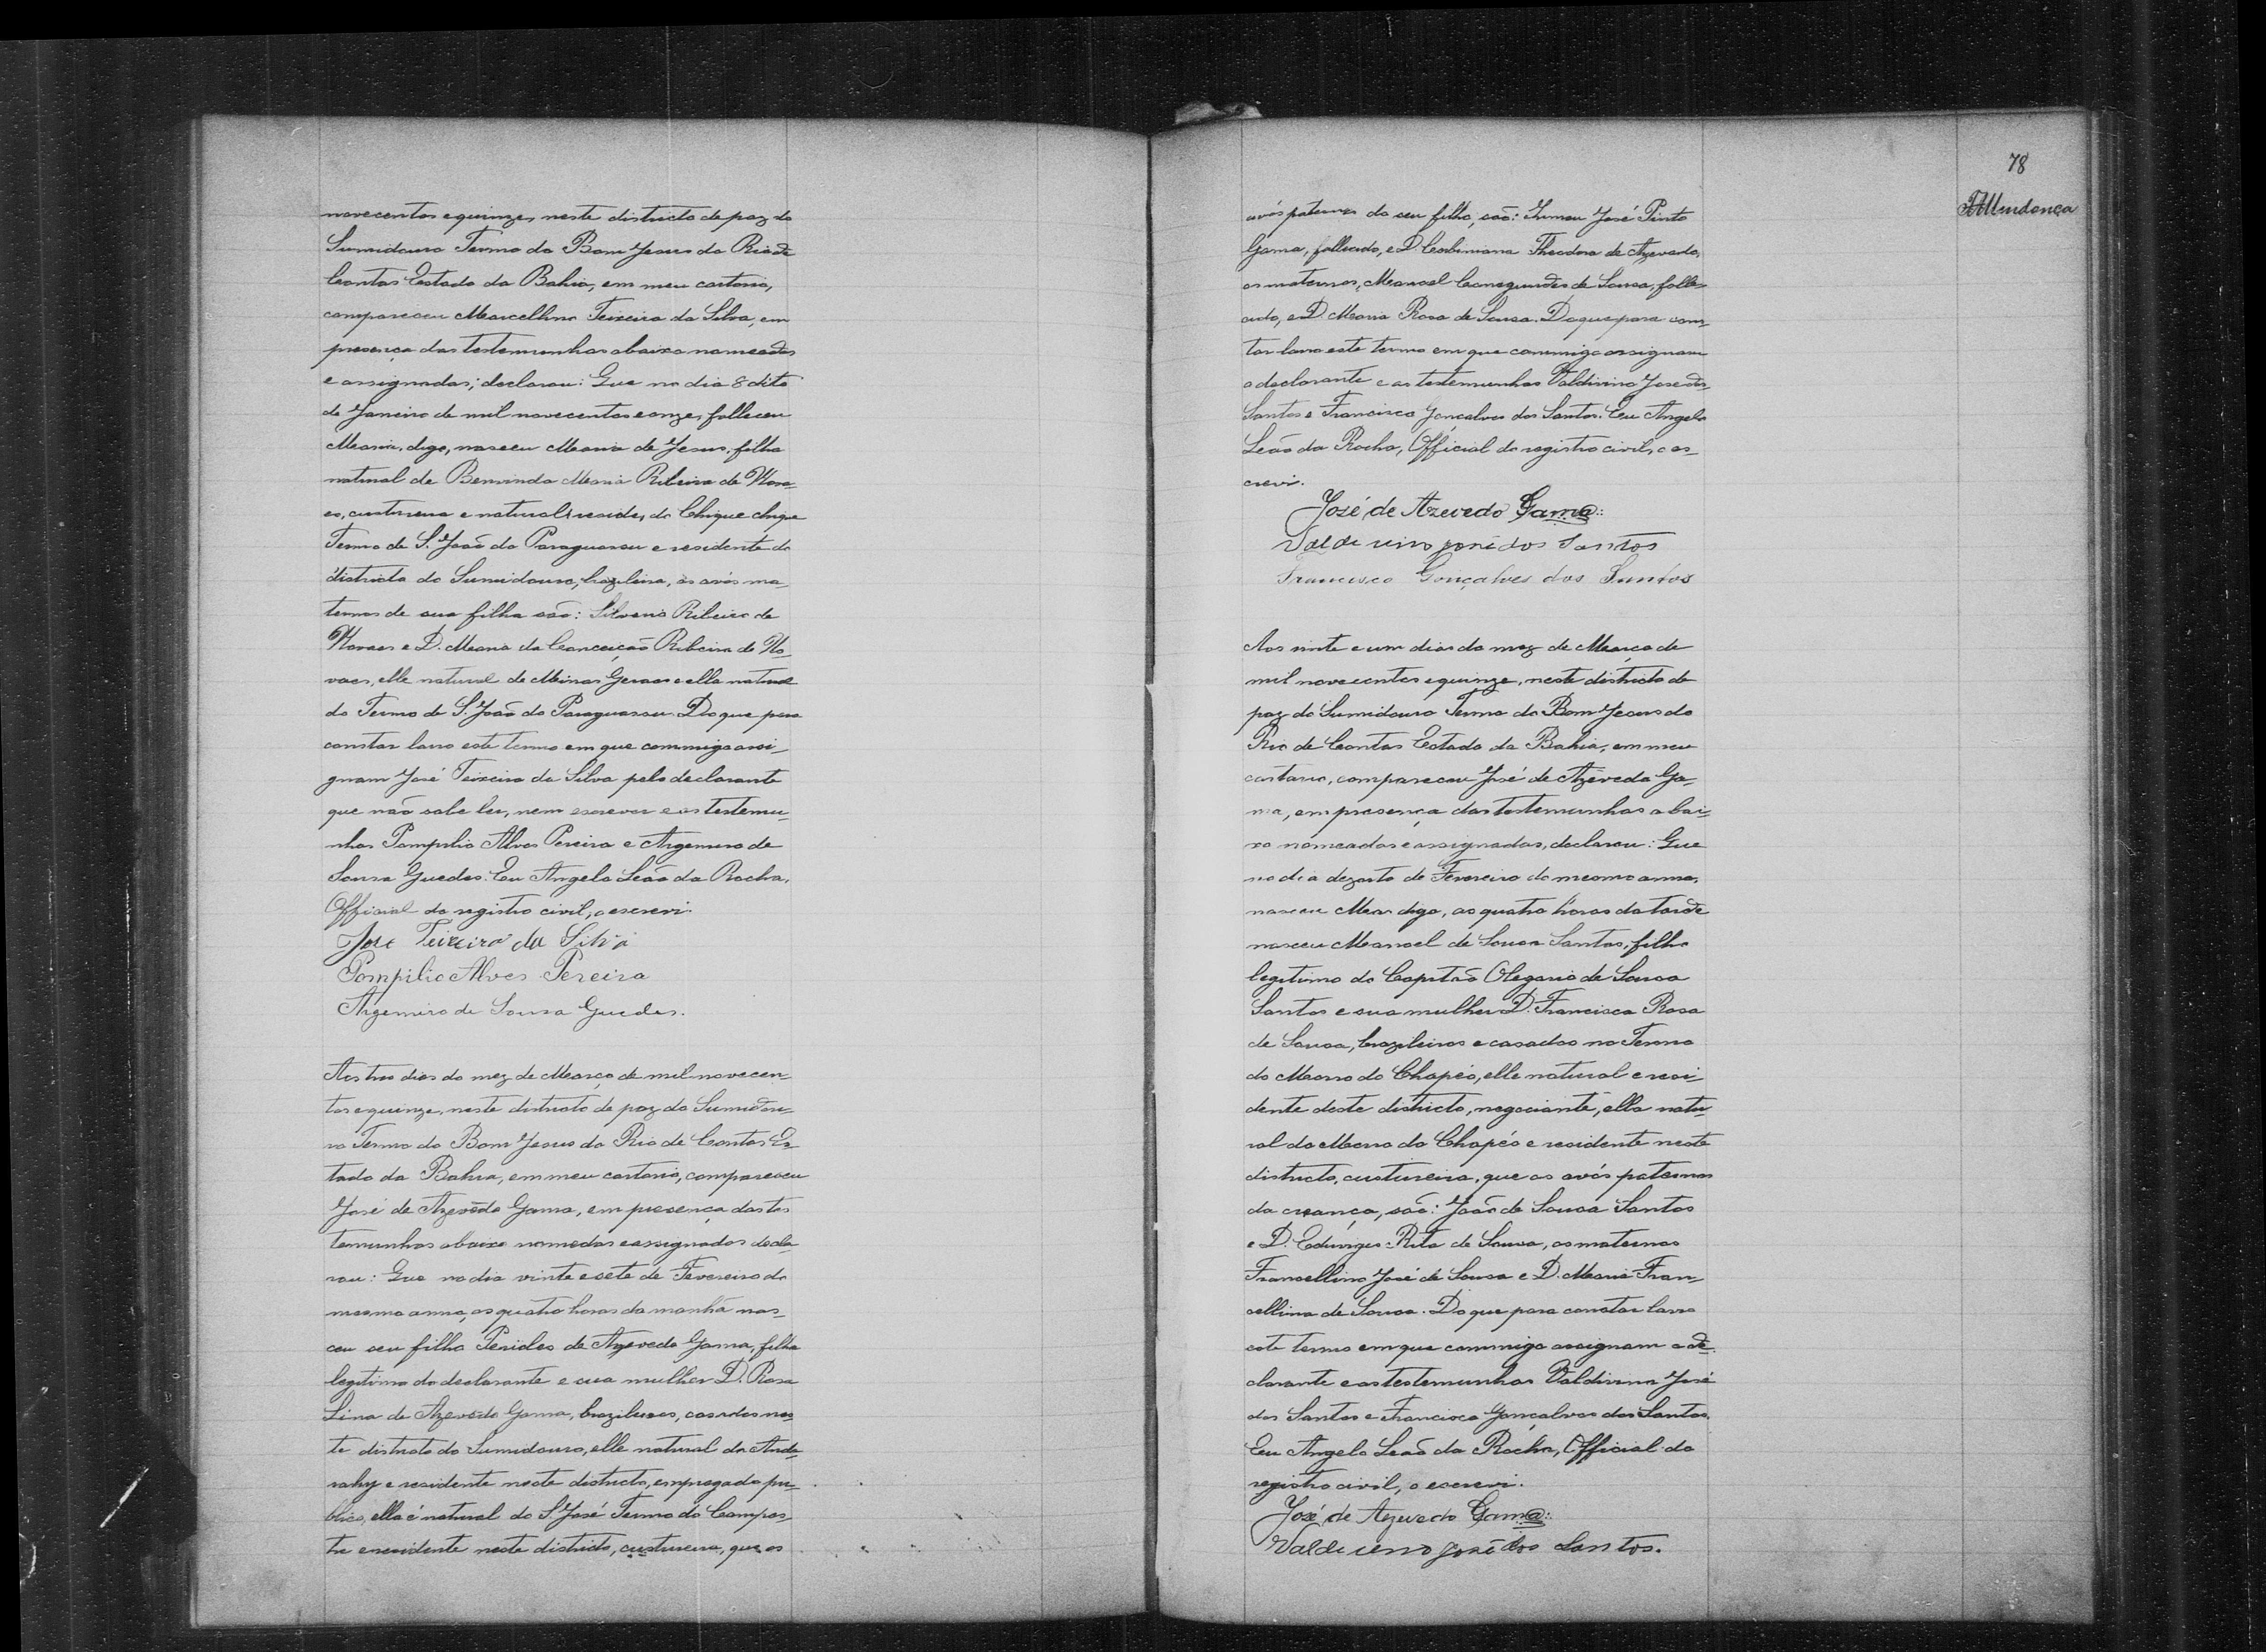 novecentos e quinze, neste districto de paz do
Sumidouro Termo do Bom Jesus do Rio de
Contas Estado da Bahia, em meu cartorio,
compareceu Marcellino Teixeira da Silva, em
presença das testemunhas abaixo nomeadas
e assignadas; declarou: Que no dia 8 dito
de Janeiro de mil novecentos e onze, falleceu
Maria, digo, nasceu Maria de Jesus, filha
natural de Bemvinda Maria Ribeiro de Nova-
es, custureira e natural reside, do Chique chique
Termo de S. João do Paraguassu e residente do
districto do Sumidouro, brazileira, os avós ma-
ternos de sua filha são: Silverio Ribeiro de
Novaes e D. Maria da Conceição Ribeiro de No-
vaes, elle natural de Minas Geraes e ella natural
do Termo de S. João do Paraguassu. Do que para
constar lavro este termo em que commigo assi-
gnam José Teixeira da Silva pelo declarante
que não sabe ler, nem escrever e as testemu-
nhas Pompilio Alves Pereira e Argemiro de
Sousa Guedes. Eu Angelo Leão da Rocha,
Official do registro civil, o escrevi.
José Teixeira da Silva
Pompilio Alves Pereira
Argemiro de Sousa Guedes.
Aos tres dias do mez de Março de mil novecen-
tos e quinze, neste districto de paz do Sumidou-
ro Termo do Bom Jesus do Rio de Contas Es-
tado da Bahia, em meu cartorio, compareceu
José de Azevêdo Gama, em presença das tes
temunhas abaixo nomedas e assignados decla-
rou: Que no dia vinte e sete de Fevereiro do
mesmo anno, as quatro horas da manhã nas-
ceu seu filho Pericles de Azevedo Gama, filho
legitimo do declarante e sua mulher D. Rosa
Lina de Azevêdo Gama, brazileiros, casados nes
te districto do Sumidouro, elle natural do Anda-
rahy e residente neste districto, empregado pu-
blico, ella é natural de S. José Termo do Campes-
tre e residente neste districto, custureira, que os
78
Mendonça
avós paternos do seu filho, são: José Pinto
Gama, fallecido, e D. Theodora de Azevedo,
os maternos, Manoel de Sousa, falle-
cido, e D. Maria Rosa de Sousa. Do que para cons-
tar lavro este termo em que commigo assignam
o declarante e as testemunhas Valdivino José dos
Santos e Francisco Gonçalves dos Santos. Eu Angelo
Leão da Rocha, Official do registro civil, o es-
crevi.
José de Azevedo Gama:
Valdivino José dos Santos
Francisco Gonçalves dos Santos
Aos vinte e um dias do mez de Março de
mil novecentos e quinze, neste districto de
paz do Sumidouro Termo do Bom Jesus do
Rio de Contas Estado da Bahia, em meu
cartorio, compareceu José de Azêvedo Ga-
ma, em presença das testemunhas abai-
xo nomeadas e assignadas, declarou: Que
no dia dezoito de Fevereiro do mesmo anno,
nasceu Mar digo, as quatro horas da tarde
nasceu Manoel de Sousa Santos, filho
legitimo do Capitão Olegario de Sousa
Santos e sua mulher D. Francisca Rosa
de Sousa, brazileiros e casados no Termo
do Morro do Chapéo, elle natural e resi-
dente deste districto, negociante, ella natu-
ral do Morro do Chapéo e residente neste
districto, custureira, que os avós paternos
da creança, são: João de Sousa Santos
e D. Eduviges Rita de Sousa, os maternos
Francellino José de Sousa e D. Maria Fran-
cellina de Sousa. Do que para constar lavro
este termo em que commigo assignam o de-
clarante e as testemunhas Valdivino José
dos Santos e Francisco Gonçalves dos Santos.
Eu Angelo Leão da Rocha, Official do
registro civil, o escrevi.
José de Azevedo Gama:
Valdivino José dos Santos.